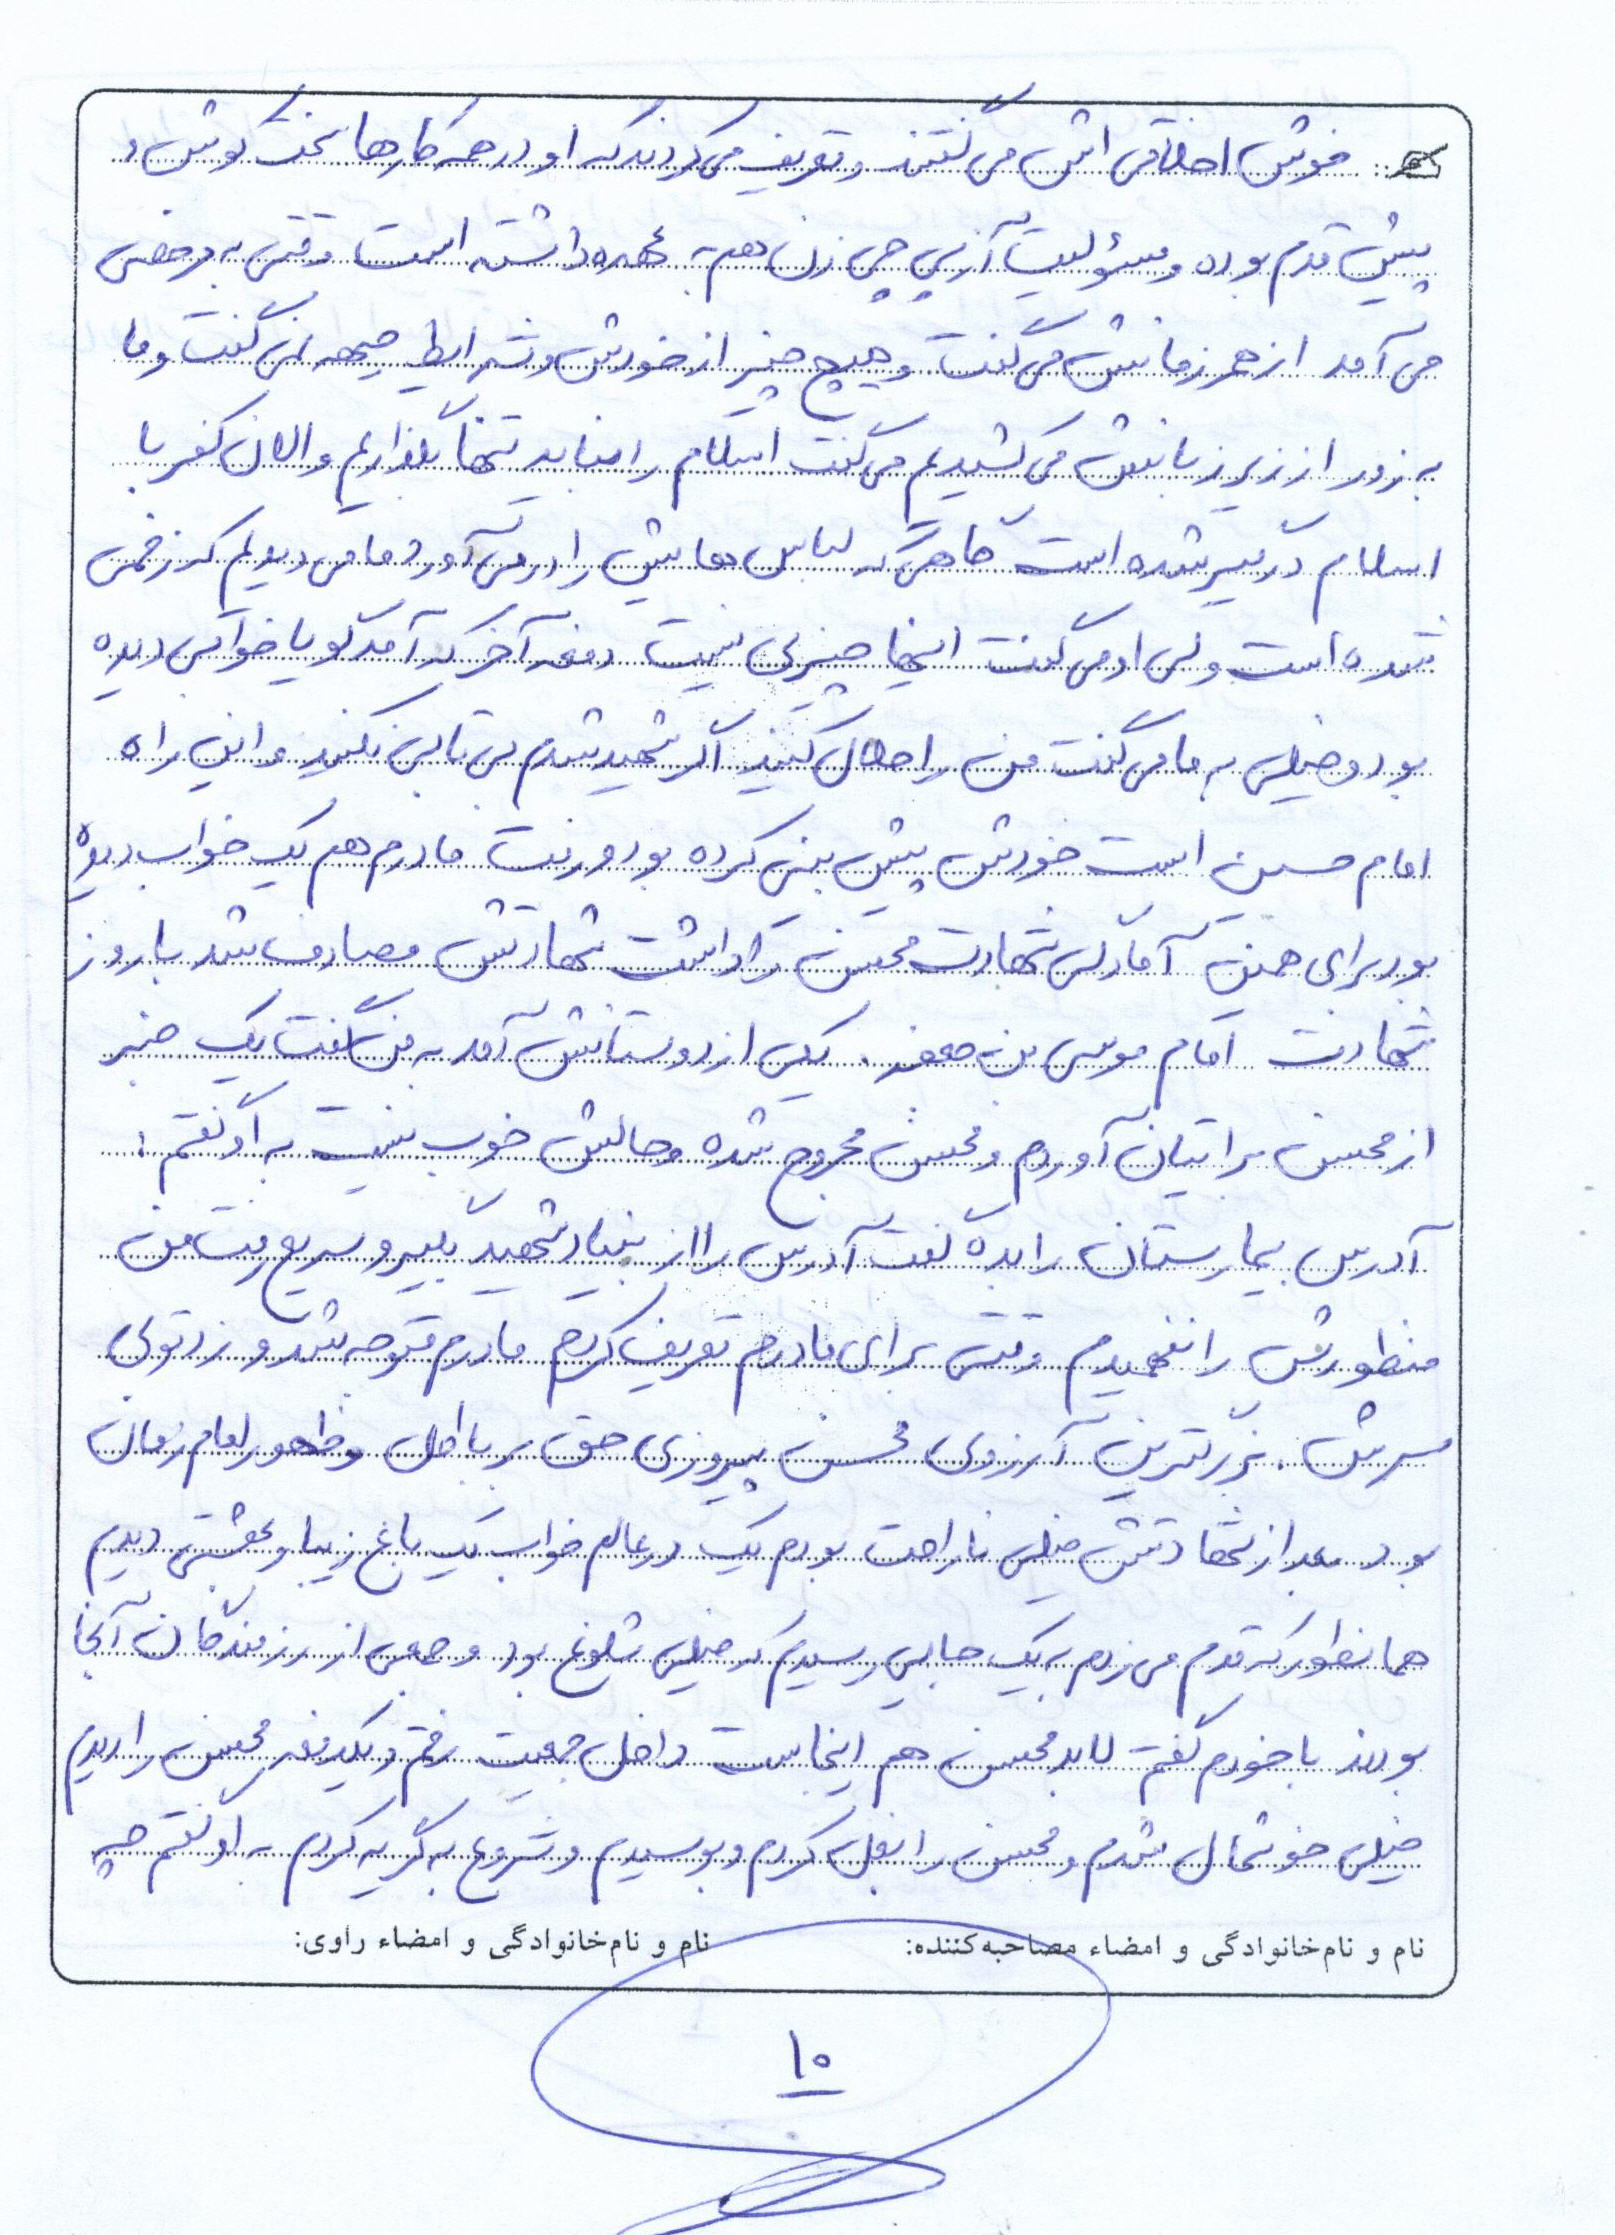 خوش اخلاقی اش می گفتند و تعریف می کردند که او در همه کارها سخت کوش و
پیش قدم بوده و مسئولیت آرپی جی زن هم به عهده داشته است وقتی به مرخصی
می آمد از همرزمانش می گفت و هیچ چیز از خودش و شرایط جبهه نمی گفت و ما
به زور از زیر زبانش می کشیدیم می گفت اسلام را نباید تنها بگذاریم و الان کفر با
اسلام درگیر شده است گاهی که لباس هایش را در می آورد ما می دیدیم که زخمی
شده است ولی او می گفت اینها چیزی نیست دفعه آخر که آمد گویا خوابی دیده
بود و خیلی به ما می گفت من را حلال کنید اگر شهید شدم بی تابی نکنید و این راه
امام حسین است خودش پیش بینی کرده بود و رفت مادرم هم یک خواب دیده
بود برای همین آمادگی شهادت محسن را داشت شهادتش مصادف شد با روز
شهادت امام موسی بن جعفر. یکی از دوستانش آمد به من گفت یک خبر
از محسن براتیان آوردم و محسن مجروح شده و حالش خوب نیست به او گفتم:
آدرس بیمارستان را بده گفت آدرس را از بنیاد شهید بگیر و سریع رفت من
منظورش را نفهمیدم وقتی برای مادرم تعریف کردم مادرم متوجه شد و زد توی
سرش. بزرگترین آرزوی محسن پیروزی حق بر باطل و ظهور امام زمان
بود بعد از شهادتش خیلی ناراحت بودم یک در عالم خواب یک باغ زیبا و بهشتی دیدم
همانطور که قدم می زدم به یک جایی رسیدم که خیلی شلوغ بود و جمعی از رزمندگان آنجا
بودند با خودم گفتم لابد محسن هم اینجاست داخل جمعیت رفتم و یکدفعه محسن را دیدم
خیلی خوشحال شدم و محسن را بغل کردم و بوسیدم و شروع به گریه کردم به او گفتم چه
نام و نام‌خانوادگی و امضاء مصاحبه‌کننده: نام و نام‌خانوادگی و امضاء راوی:
۱۰